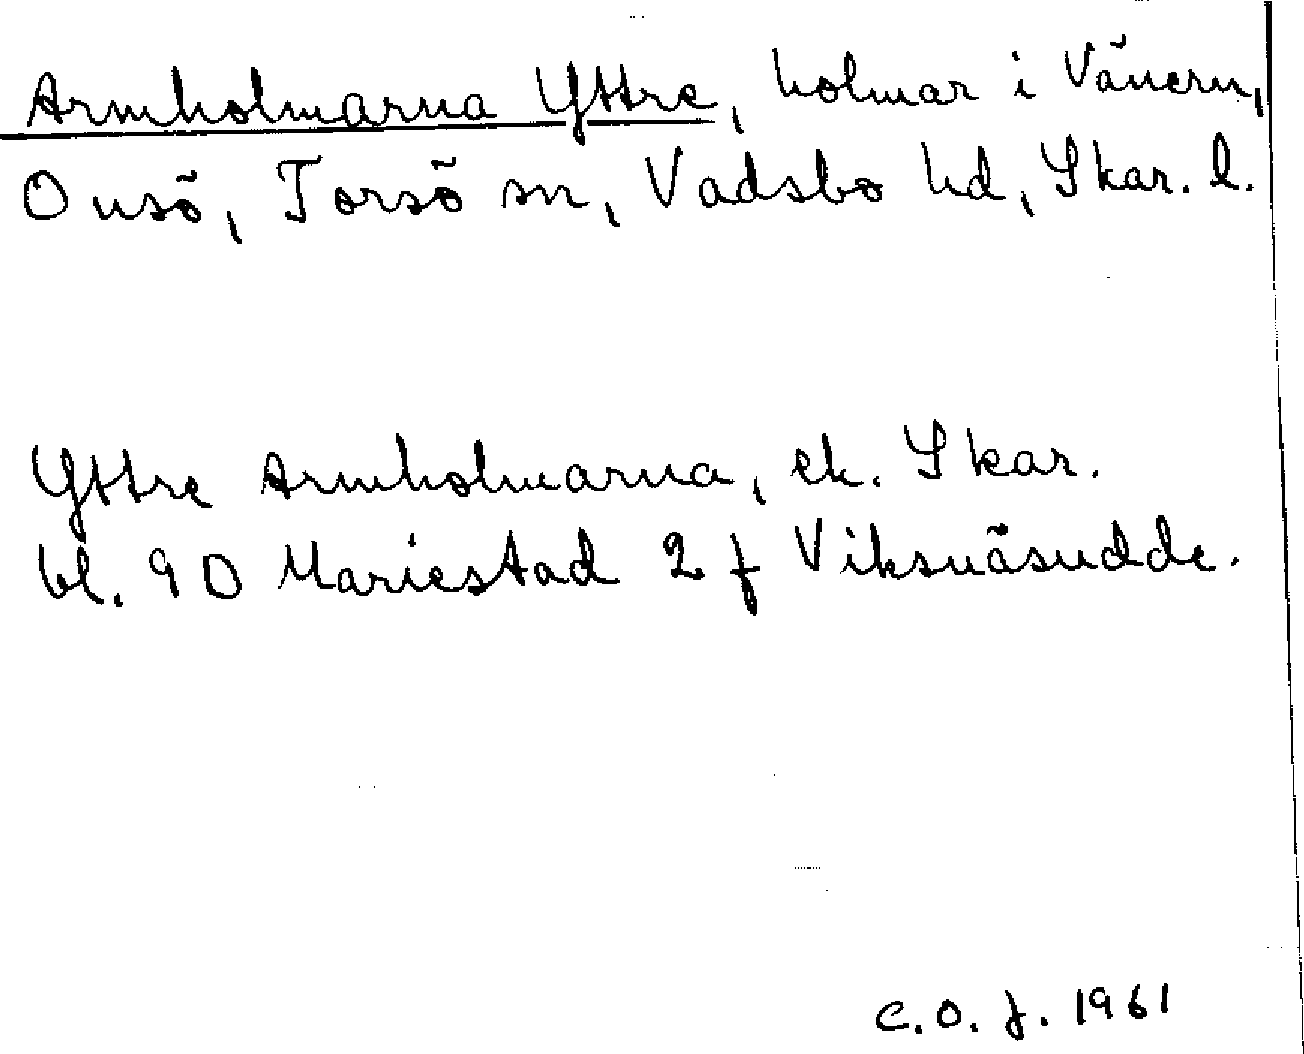 Armholmarna Yttre, holmar i Vänern,
Onsö, Torsö sn, Vadsbo hd, Skar. l.
Yttre Armholmarna, ek. Skar.
bl. 90 Mariestad 2 f Viksnäsudde.
C.O.f. 1961